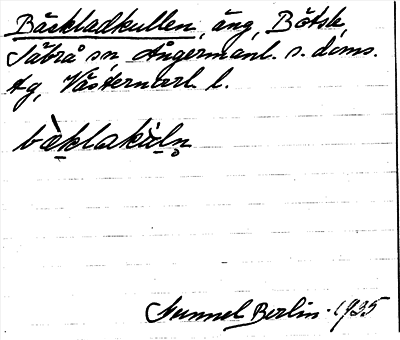 Bäckladkullen, äng, Bötsle,
Säbrå sn, Ångermanl. s. doms.
tg, Västernorrl. l.
bæ̀klakùln̥
Gunnel Berlin. 1935